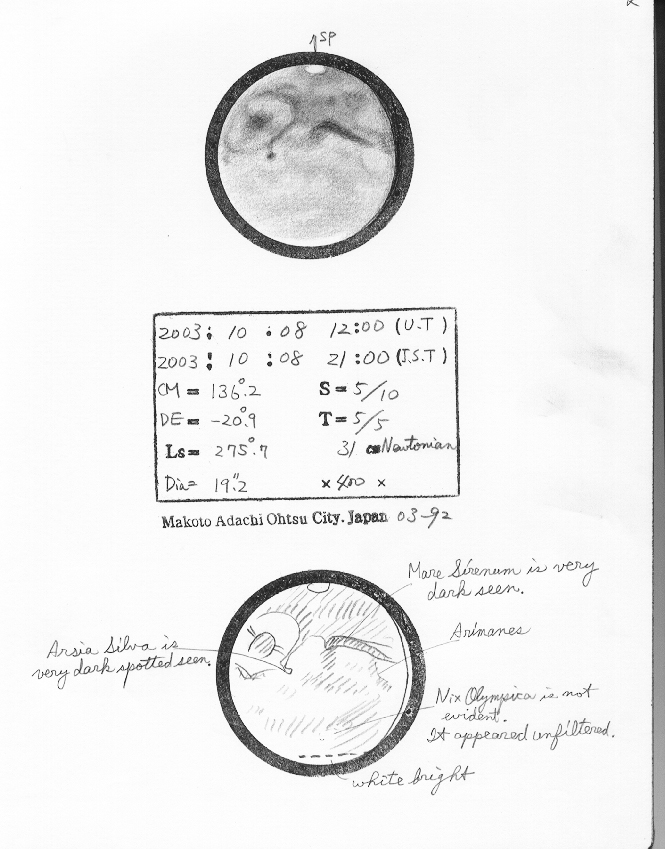 SP
2003: 10 :08 12:00 (U.T)
2003: 10 :08 21:00 (J.S.T)
CM= 136°.2 S= 5/10
DE= -20°.9 T= 5/5
Ls= 275°.7 31 cm Newtonian
Dia= 19".2 × 400 ×
Makoto Adachi Ohtsu City. Japan 03-92
Mare Sirenum is very
dark seen.
Arimanes
Arsia Silva is
very dark spotted seen.
Nix Olympica is not
evident.
It appeared unfiltered.
white bright